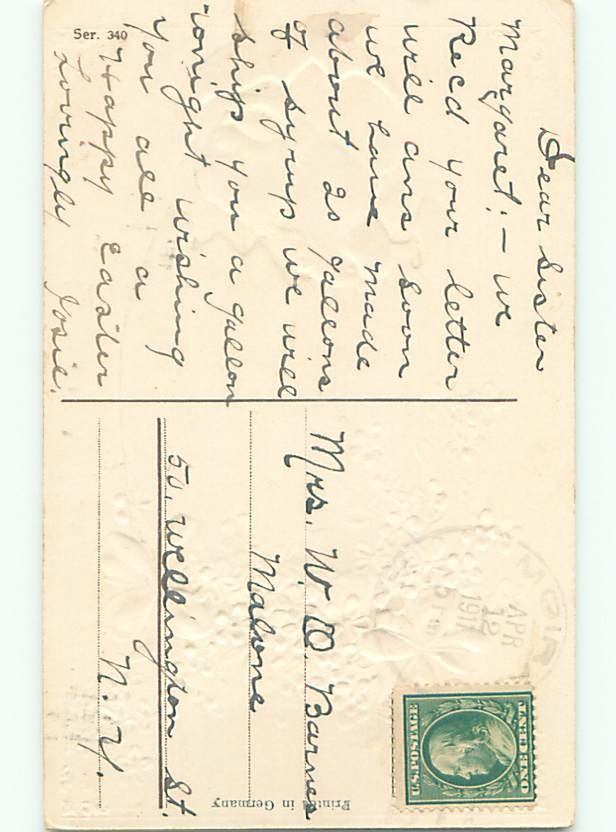 Ser. 340
Dear Sister
Margaret:- we
Recd your letter
will ans soon
we have made
about 20 gallons
of syrup we will
ship you a gallon
tonight wishing
you all a
Happy Easter
Lovingly Josie.
Mrs. W. D. Barnes
Malone
50. Wellington St.
N.Y.
APR
12
191
U.S. POSTAGE
ONE CENT
Printed in Germany